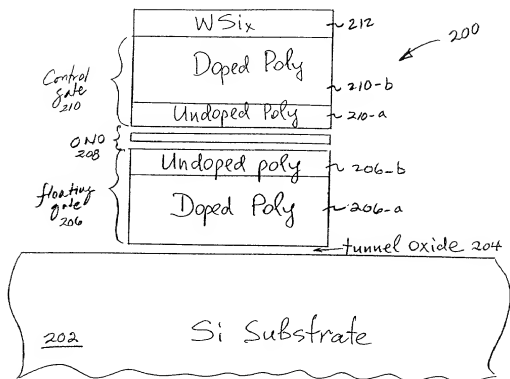 WSix
212
200
Doped Poly
Control
gate
210
210-b
Undoped Poly
210-a
ONO
208
Undoped poly
206-b
floating
gate
206
Doped Poly
206-a
tunnel oxide 204
202
Si Substrate